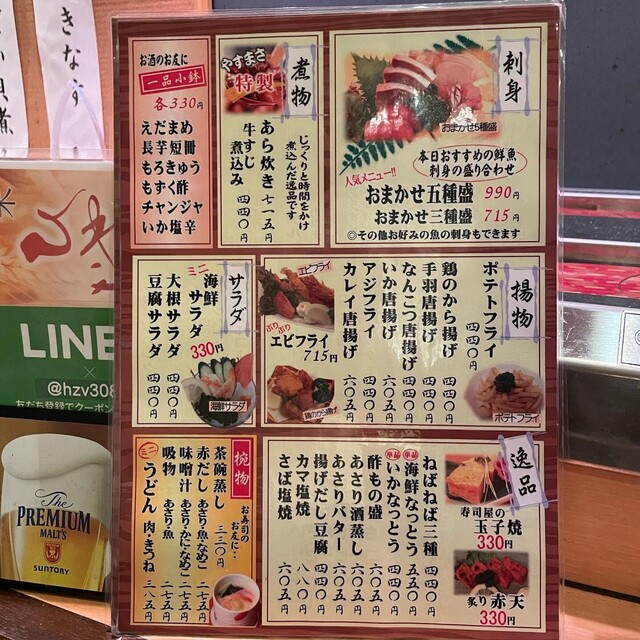 刺身
おまかせ5種盛
本日おすすめの鮮魚
刺身の盛り合わせ
人気メニュー!!
おまかせ五種盛 990円
おまかせ三種盛 715円
◎その他お好みの魚の刺身もできます
煮物
やすまさ
特製
じっくりと時間をかけ
煮込んだ逸品です
あら炊き 七一五円
牛すじ
煮込み 四四〇円
お酒のお友に
一品小鉢
各330円
えだまめ
長芋短冊
もろきゅう
もずく酢
チャンジャ
いか塩辛
揚物
ポテトフライ 四四〇円
鶏のから揚げ 四四〇円
手羽唐揚げ 四四〇円
なんこつ唐揚げ 四四〇円
いか唐揚げ 六〇五円
アジフライ 四四〇円
カレイ唐揚げ 六〇五円
エビフライ
ぷりぷり
エビフライ
715円
鶏のから揚げ
ポテトフライ
サラダ
ミニ
海鮮
サラダ
330円
大根サラダ 四四〇円
豆腐サラダ 四四〇円
海鮮サラダ
逸品
寿司屋の
玉子焼
330円
炙り赤天
330円
ねばねば三種 四四〇円
海鮮なっとう 五五〇円
いかなっとう 四四〇円
酢もの盛 六〇五円
あさり酒蒸し 六〇五円
あさりバター 六〇五円
揚げだし豆腐 四四〇円
カマ塩焼 八八〇円
さば塩焼 六〇五円
椀物
お寿司の
お友に…
茶碗蒸し 三三〇円
赤だし あさり・魚・なめこ 二七五円
味噌汁 あさり・かに・なめこ 二七五円
吸物 あさり・魚 二七五円
ミニ
うどん 肉・きつね 三八五円
きなす
LINE
×
@hzv308
友だち登録でクーポン
The
PREMIUM
MALT'S
SUNTORY